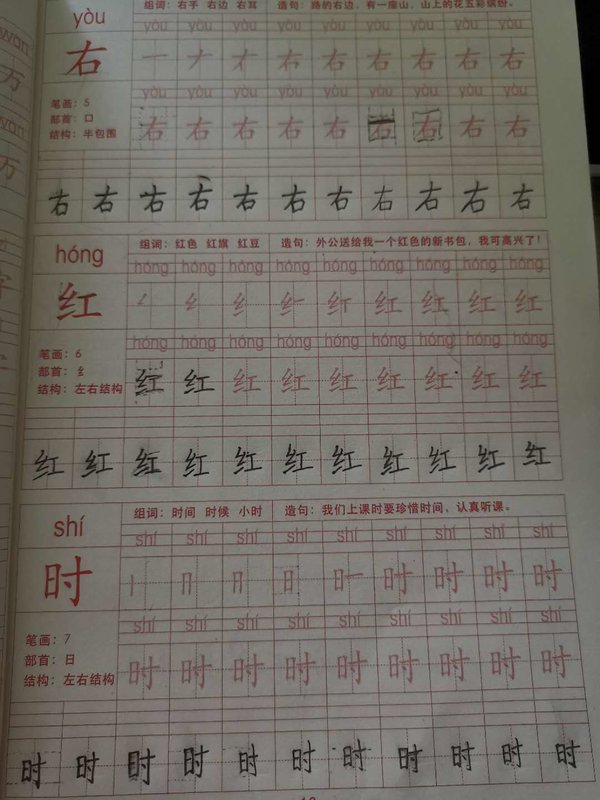 yòu 组词：右手 右边 右耳 造句：路的右边，有一座山，山上的花五彩缤纷。
yòu yòu yòu yòu yòu yòu yòu yòu yòu
右
yòu yòu yòu yòu yòu yòu yòu yòu yòu
笔画：5
部首：口
结构：半包围
右 右 右 右 右 右 右 右 右
右 右 右 右 右 右 右 右 右 右 右
hóng 组词：红色 红旗 红豆 造句：外公送给我一个红色的新书包，我可高兴了！
hóng hóng hóng hóng hóng hóng hóng hóng hóng
红 红 红 红 红
hóng hóng hóng hóng hóng hóng hóng hóng hóng
笔画：6
部首：纟
结构：左右结构
红 红 红 红 红 红 红 红 红
红 红 红 红 红 红 红 红 红 红 红
shí 组词：时间 时候 小时 造句：我们上课时要珍惜时间，认真听课。
shí shí shí shí shí shí shí shí shí
时 时 时 时 时
shí shí shí shí shí shí shí shí shí
笔画：7
部首：日
结构：左右结构
时 时 时 时 时 时 时 时 时
时 时 时 时 时 时 时 时 时 时 时